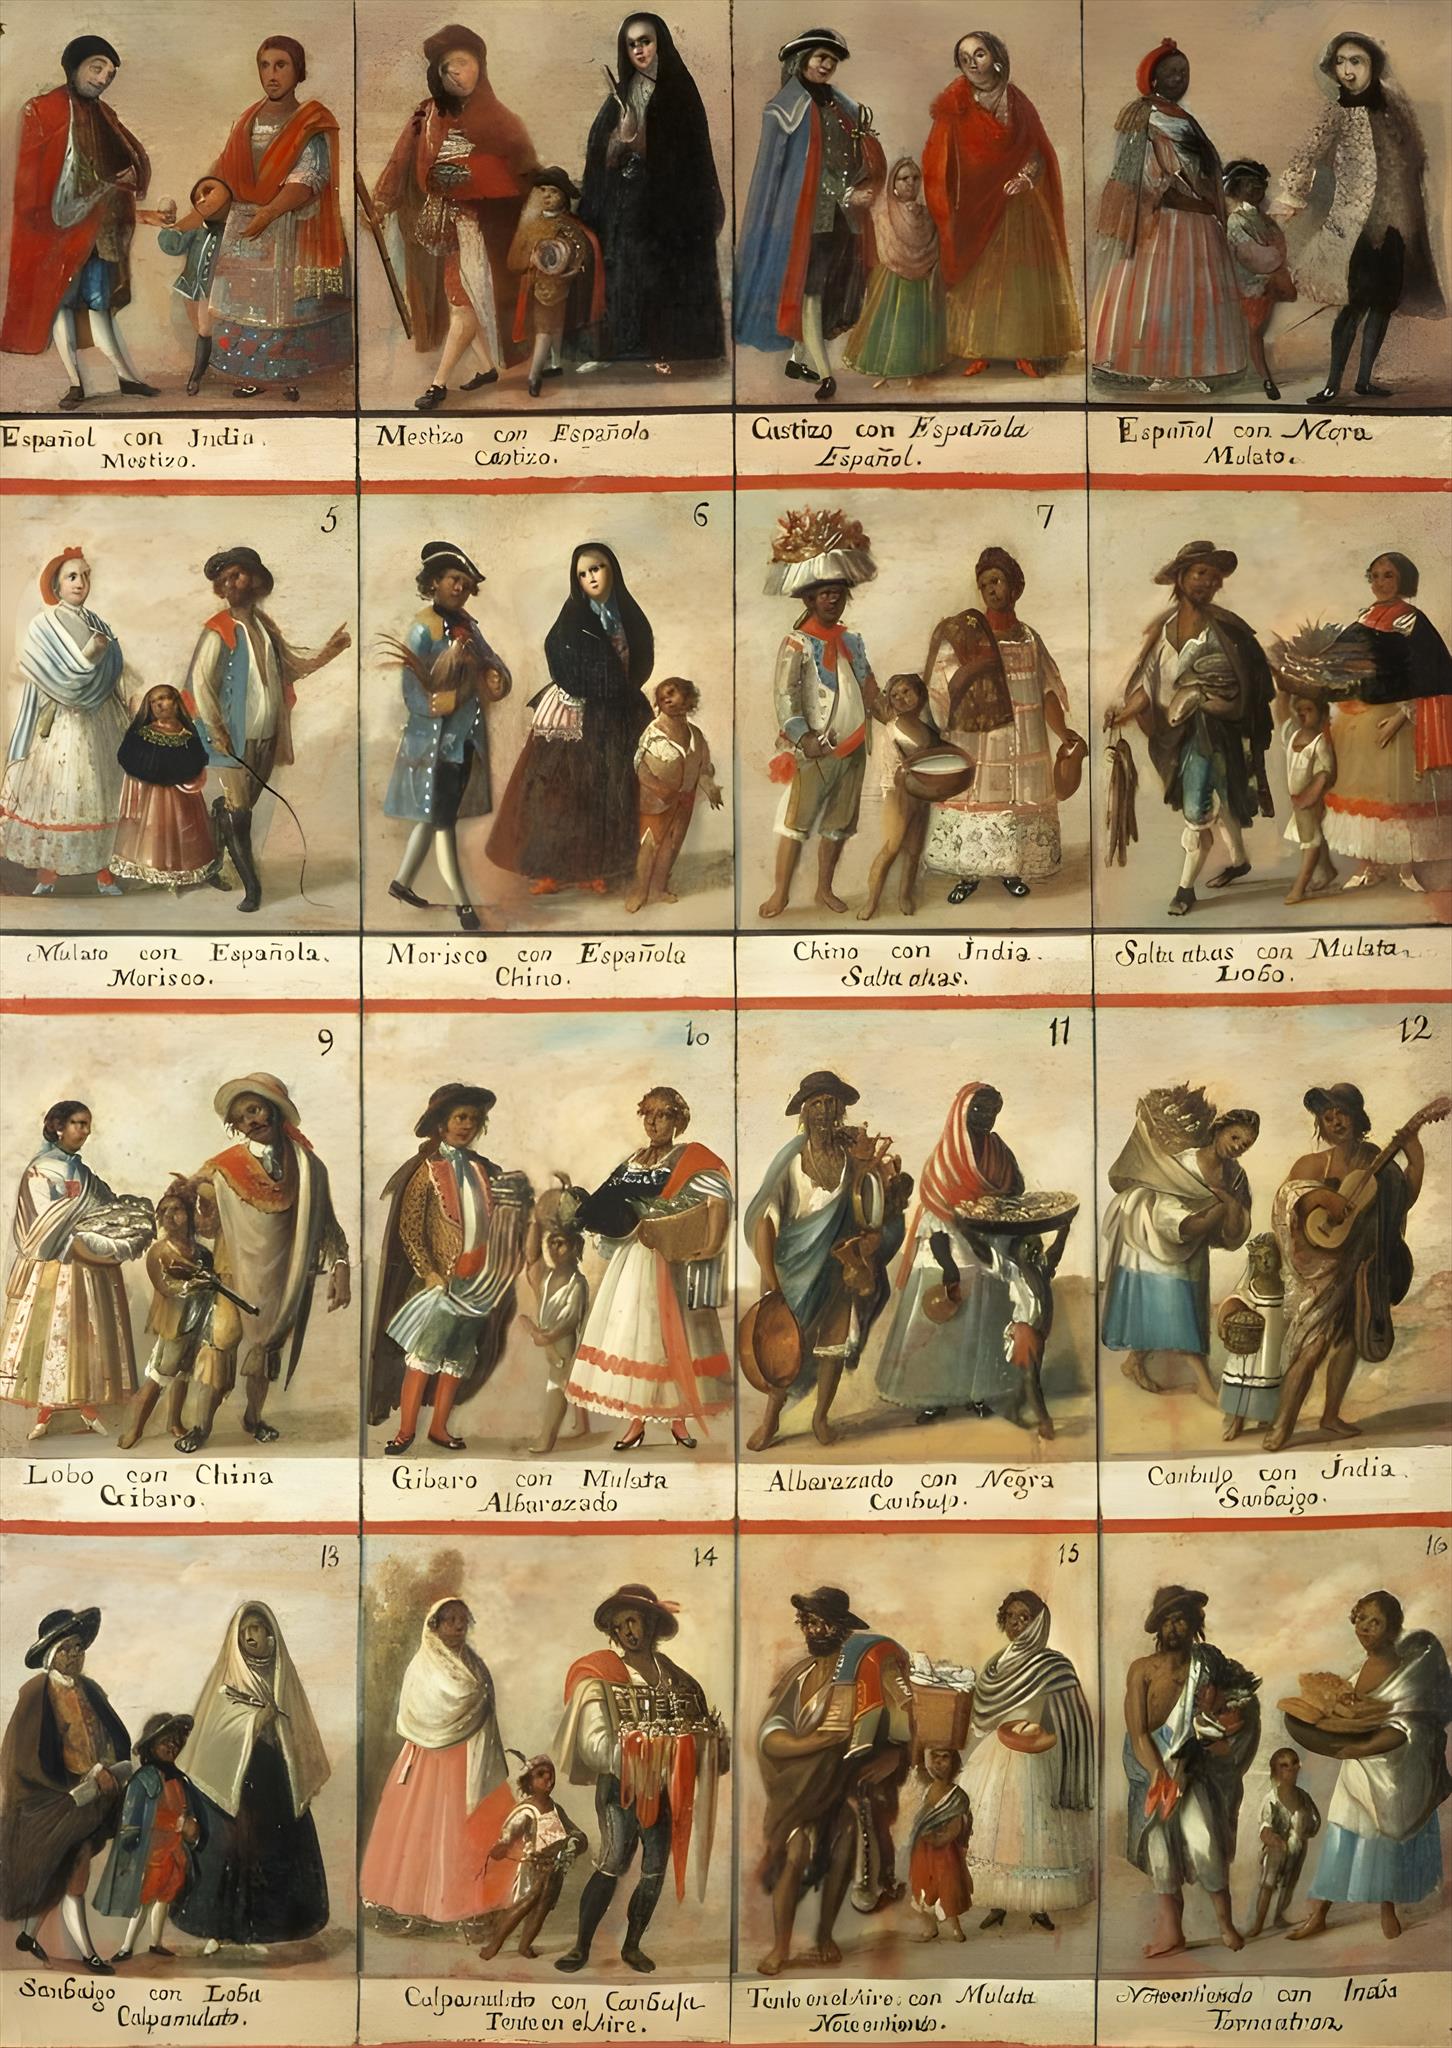 Español con India.
Mestizo.
Mestizo con Española
Castizo.
Castizo con Española
Español.
Español con Mora
Mulato.
5
Mulato con Española.
Morisco.
6
Morisco con Española
Chino.
7
Chino con India.
Salta atras.
Salta atras con Mulata.
Lobo.
9
Lobo con China
Gibaro.
10
Gibaro con Mulata
Albarazado
11
Albarazado con Negra
Canbujo.
12
Canbujo con India.
Sanbaigo.
13
Sanbaigo con Loba
Calpamulato.
14
Calpamulato con Canbuja
Tente en el Aire.
15
Tente en el Aire con Mulata
Noteentiendo.
16
Noteentiendo con India
Tornaatras